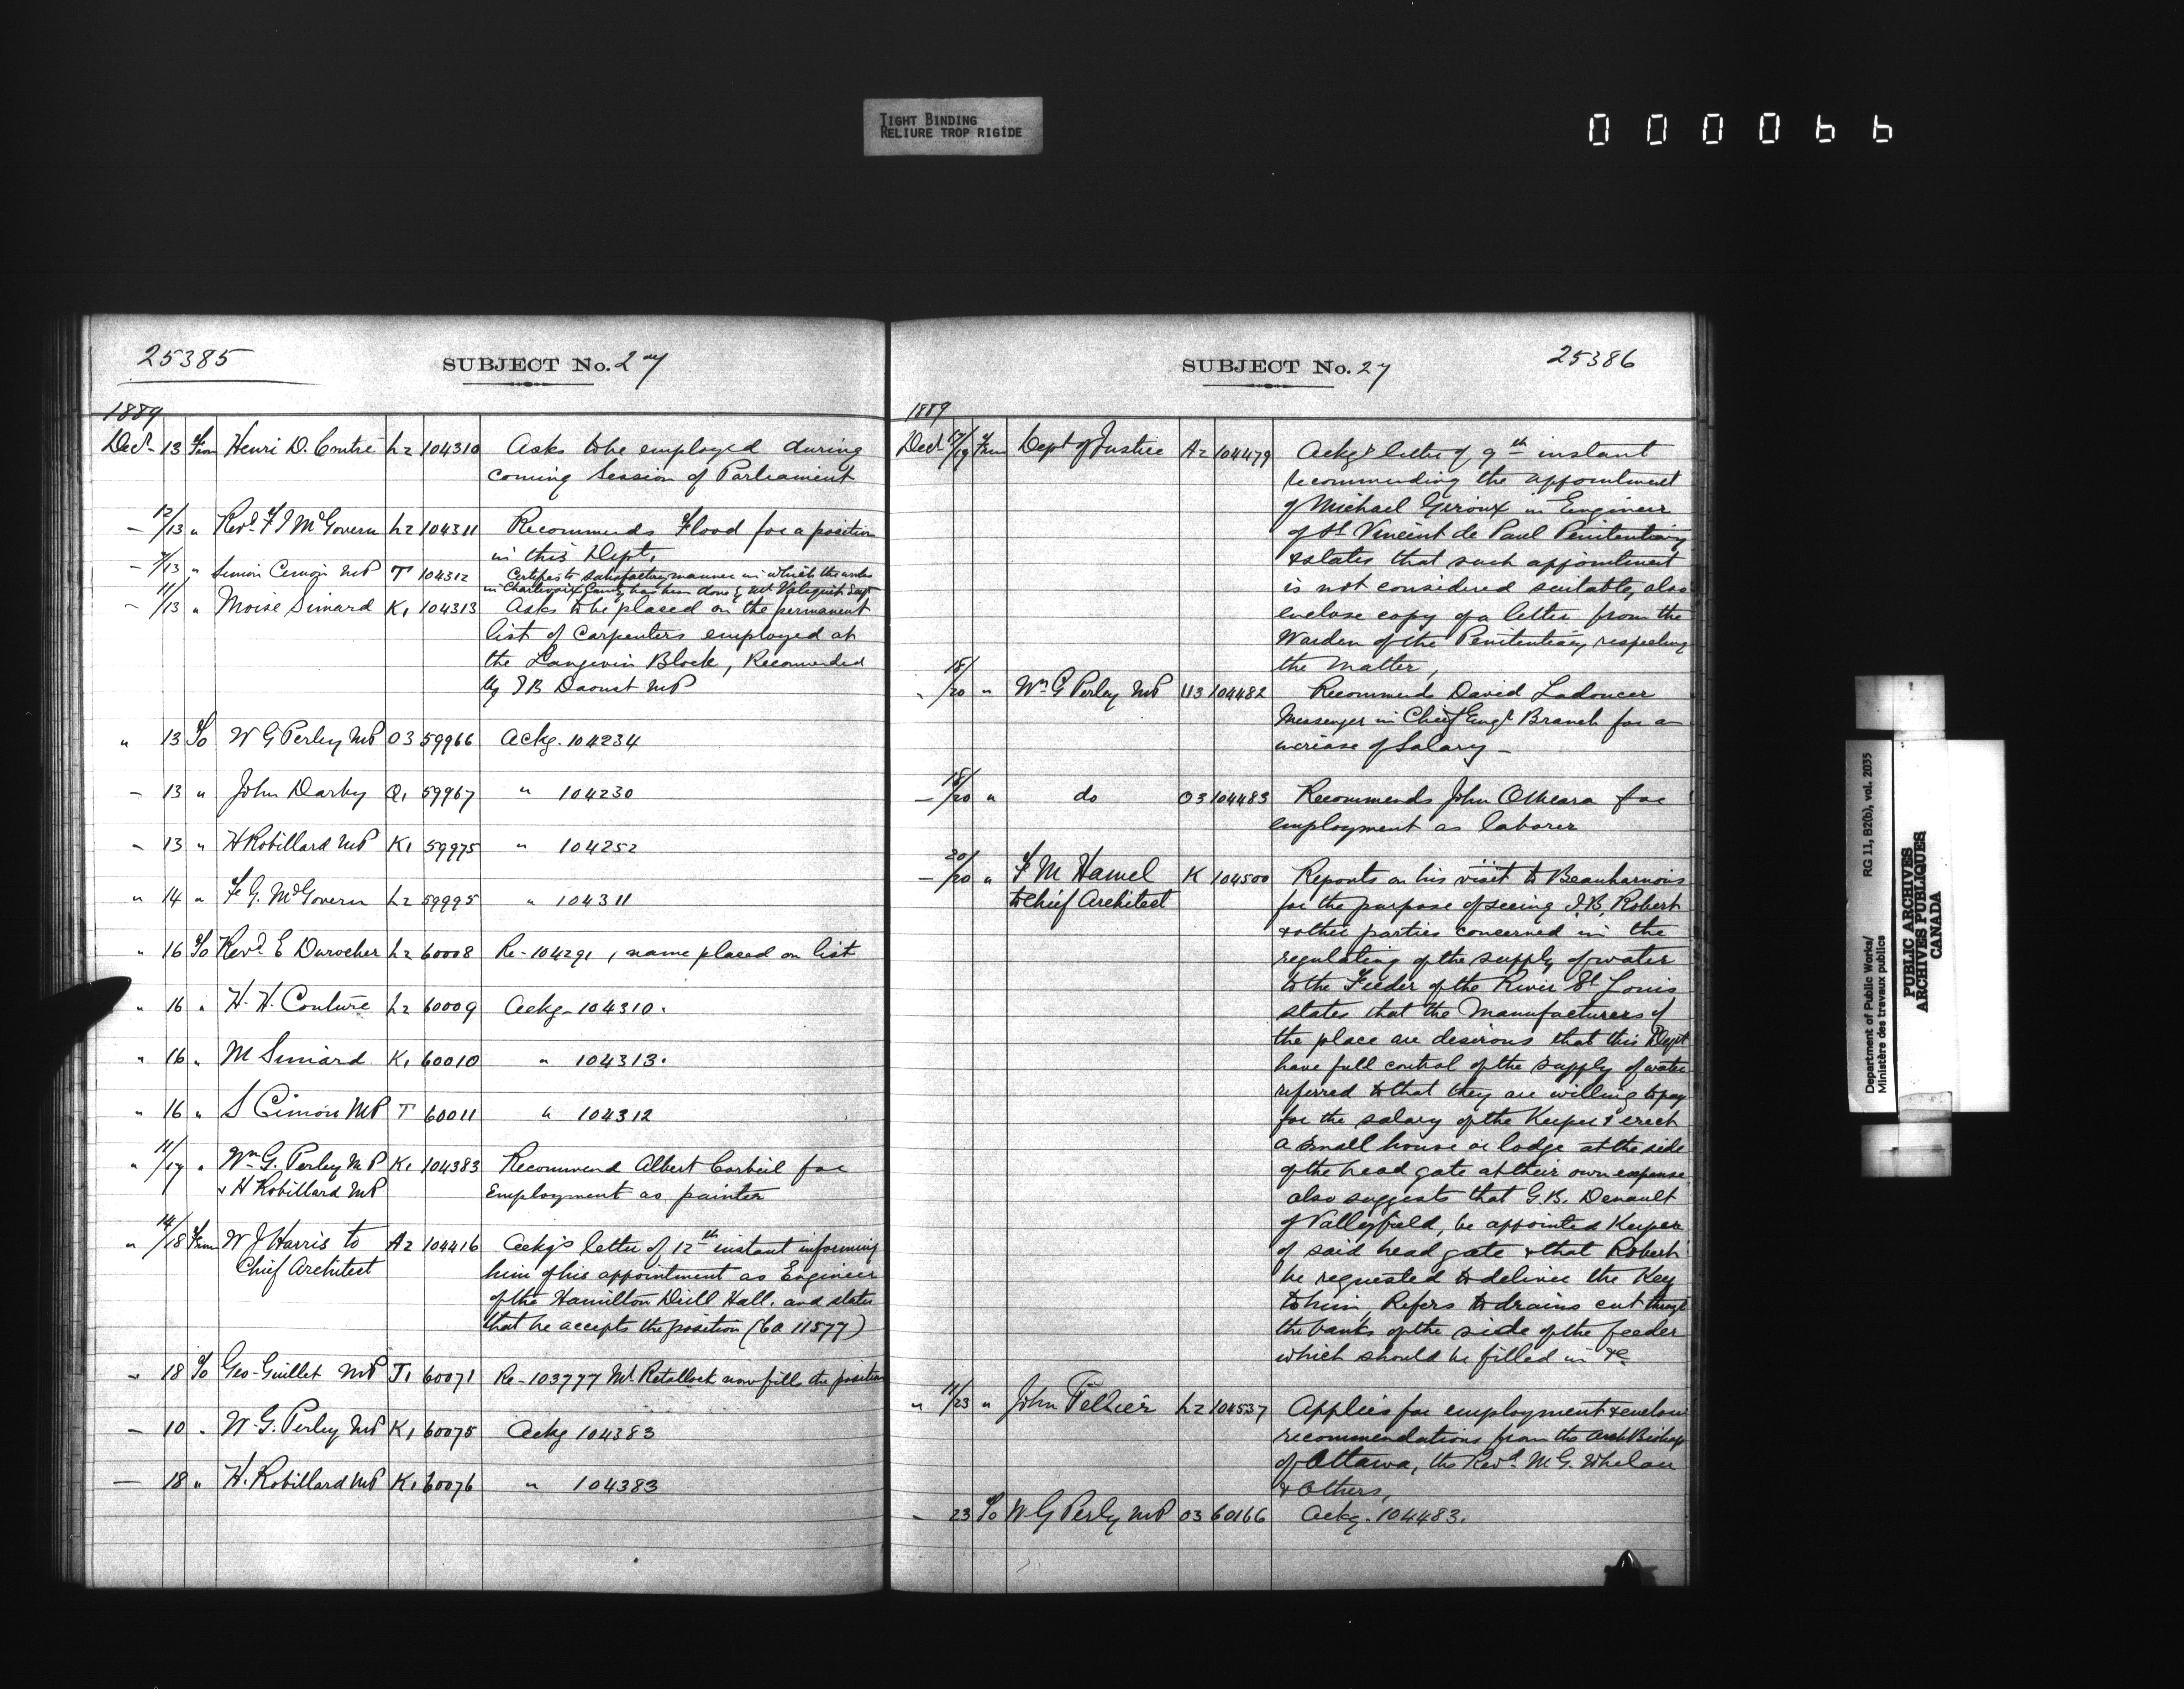 TIGHT BINDING
RELIURE TROP RIGIDE
000066
25385
SUBJECT No. 27
1889
Decr 13 From Henri D. Coutre L2 104310 Asks to be employed during
coming Session of Parliament
– 12/13 " Revd F J McGovern L2 104311 Recommends Flood for a position
in this Dept.
– 7/13 " Simon Cimon MP T 104312 Certifies to satisfactory manner in which the works
in Charlevoix County has been done by Mr Valiquet Supt
– 11/13 " Moise Simard K1 104313 Asks to be placed on the permanent
list of Carpenters employed at
the Langevin Block, Recommended
by J B Daoust MP
" 13 To W G Perley MP O3 59966 Ackg. 104234
– 13 " John Darby Q1 59967 " 104230
– 13 " H Robillard MP K1 59975 " 104252
" 14 " F. G. McGovern L2 59995 " 104311
" 16 To Revd E Durocher L2 60008 Re-104291, name placed on list
" 16 " H. H. Couture L2 60009 Ackg-104310.
" 16 " M Simard K1 60010 " 104313.
" 16 " S Cimon MP T 60011 " 104312
" 11/17 " Wm G. Perley M P K1 104383 Recommend Albert Corbeil for
& H Robillard MP Employment as painter
" 14/18 From W J Harris to A2 104416 Ackg's letter of 12th instant informing
Chief Architect him of his appointment as Engineer
of the Hamilton Drill Hall. and states
that he accepts the position (Ca 11577)
– 18 To Geo-Guillet MP J1 60071 Re-103777 Mr Retallack now fills the position
– 10 " W. G. Perley MP K1 60075 Ackg 104383
— 18 " H. Robillard MP K1 60076 " 104383
SUBJECT No. 27
25386
1889
Decr 17/19 From Dept of Justice A2 104479 Ackgs letter of 9th instant
recommending the appointment
of Michael Giroux in Engineer
of St Vincent de Paul Penitentiary
& states that such appointment
is not considered suitable, also
enclose copy of a letter from the
Warden of the Penitentiary respecting
the matter,
" 18/20 " Wm G Perley MP U3 104482 Recommends David Ladoucer
Messenger in Chief Engr Branch for an
increase of Salary –
– 18/20 " do O3 104483 Recommends John OMeara for
employment as laborer
– 20/20 " F M Hamel K 104500 Reports on his visit to Beauharnois
to Chief Architect for the purpose of seeing J.B. Robert
& other parties concerned in the
regulating of the supply of water
to the Feeder of the River St Louis
states that the Manufacturers of
the place are desirous that this Dept
have full control of the supply of water
referred to that they are willing to pay
for the salary of the Keeper & erect
a small house or lodge at the side
of the head gate at their own expense
also suggests that G.B. Denault
of Valleyfield, be appointed Keeper
of said head gate & that Robert
be requested to deliver the Key
to him, Refers to drains cut through
the banks of the side of the feeder
which should be filled in &c
" 11/23 " John Pellier L2 104537 Applies for employment & enclose
recommendations from the Arch Bishop
of Ottawa, the Revd. M G. Whelan
& Others,
– 23 To W G Perley MP O3 60166 Ackg. 104483.
Department of Public Works/ RG 11, B2(b), vol. 2035
Ministère des travaux publics
PUBLIC ARCHIVES
ARCHIVES PUBLIQUES
CANADA